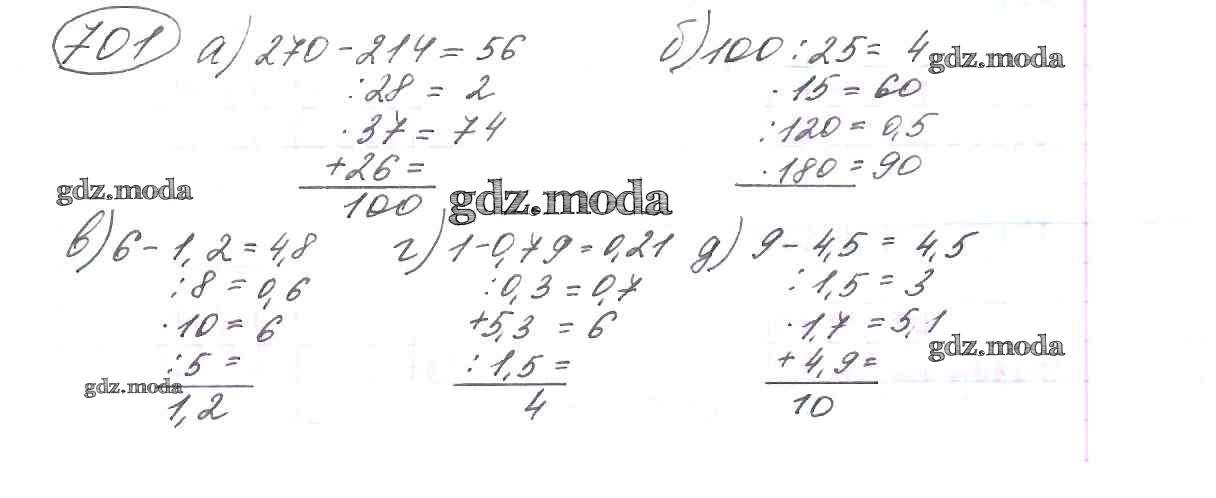 701 а) 270 - 214 = 56
: 28 = 2
· 37 = 74
+ 26 =
100
б) 100 : 25 = 4
· 15 = 60
: 120 = 0,5
· 180 = 90
gdz.moda
gdz.moda
gdz.moda
в) 6 - 1,2 = 4,8
: 8 = 0,6
· 10 = 6
: 5 =
1,2
г) 1 - 0,79 = 0,21
: 0,3 = 0,7
+ 5,3 = 6
: 1,5 =
4
д) 9 - 4,5 = 4,5
: 1,5 = 3
· 1,7 = 5,1
+ 4,9 =
10
gdz.moda
gdz.moda